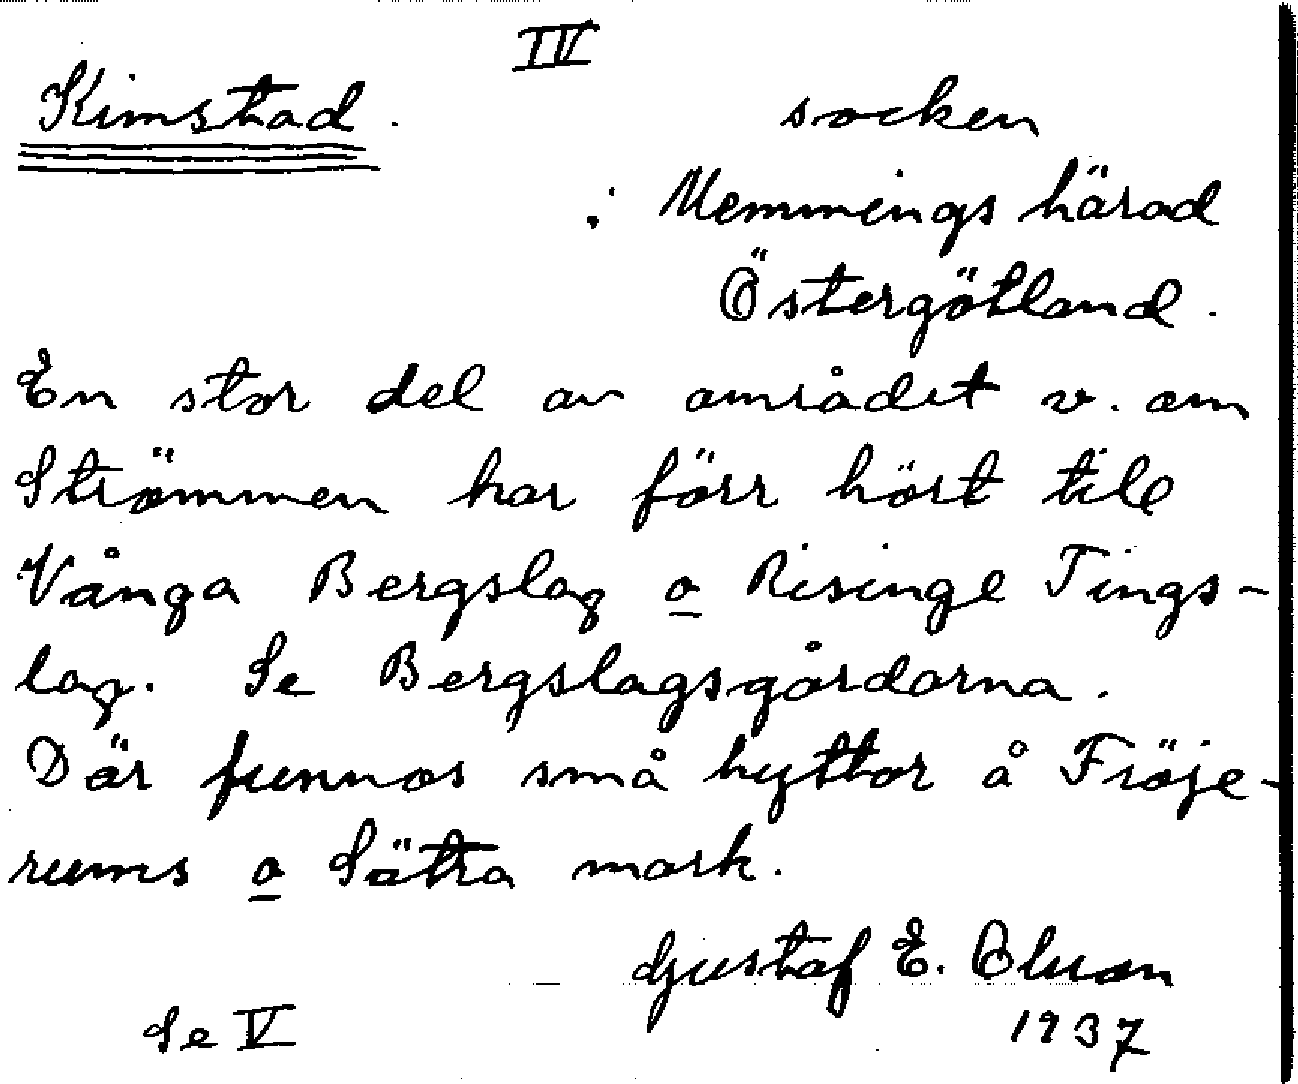 IV
Kimstad. socken
i Memmings härad
Östergötland.
En stor del av området v. om
Strömmen har förr hört till
Vånga Bergslag o Risinge Tings-
lag. Se Bergslagsgårdarna.
Där funnos små hyttor å Fröje-
rums o Sätra mark.
Gustaf E. Olsson
Se V 1937